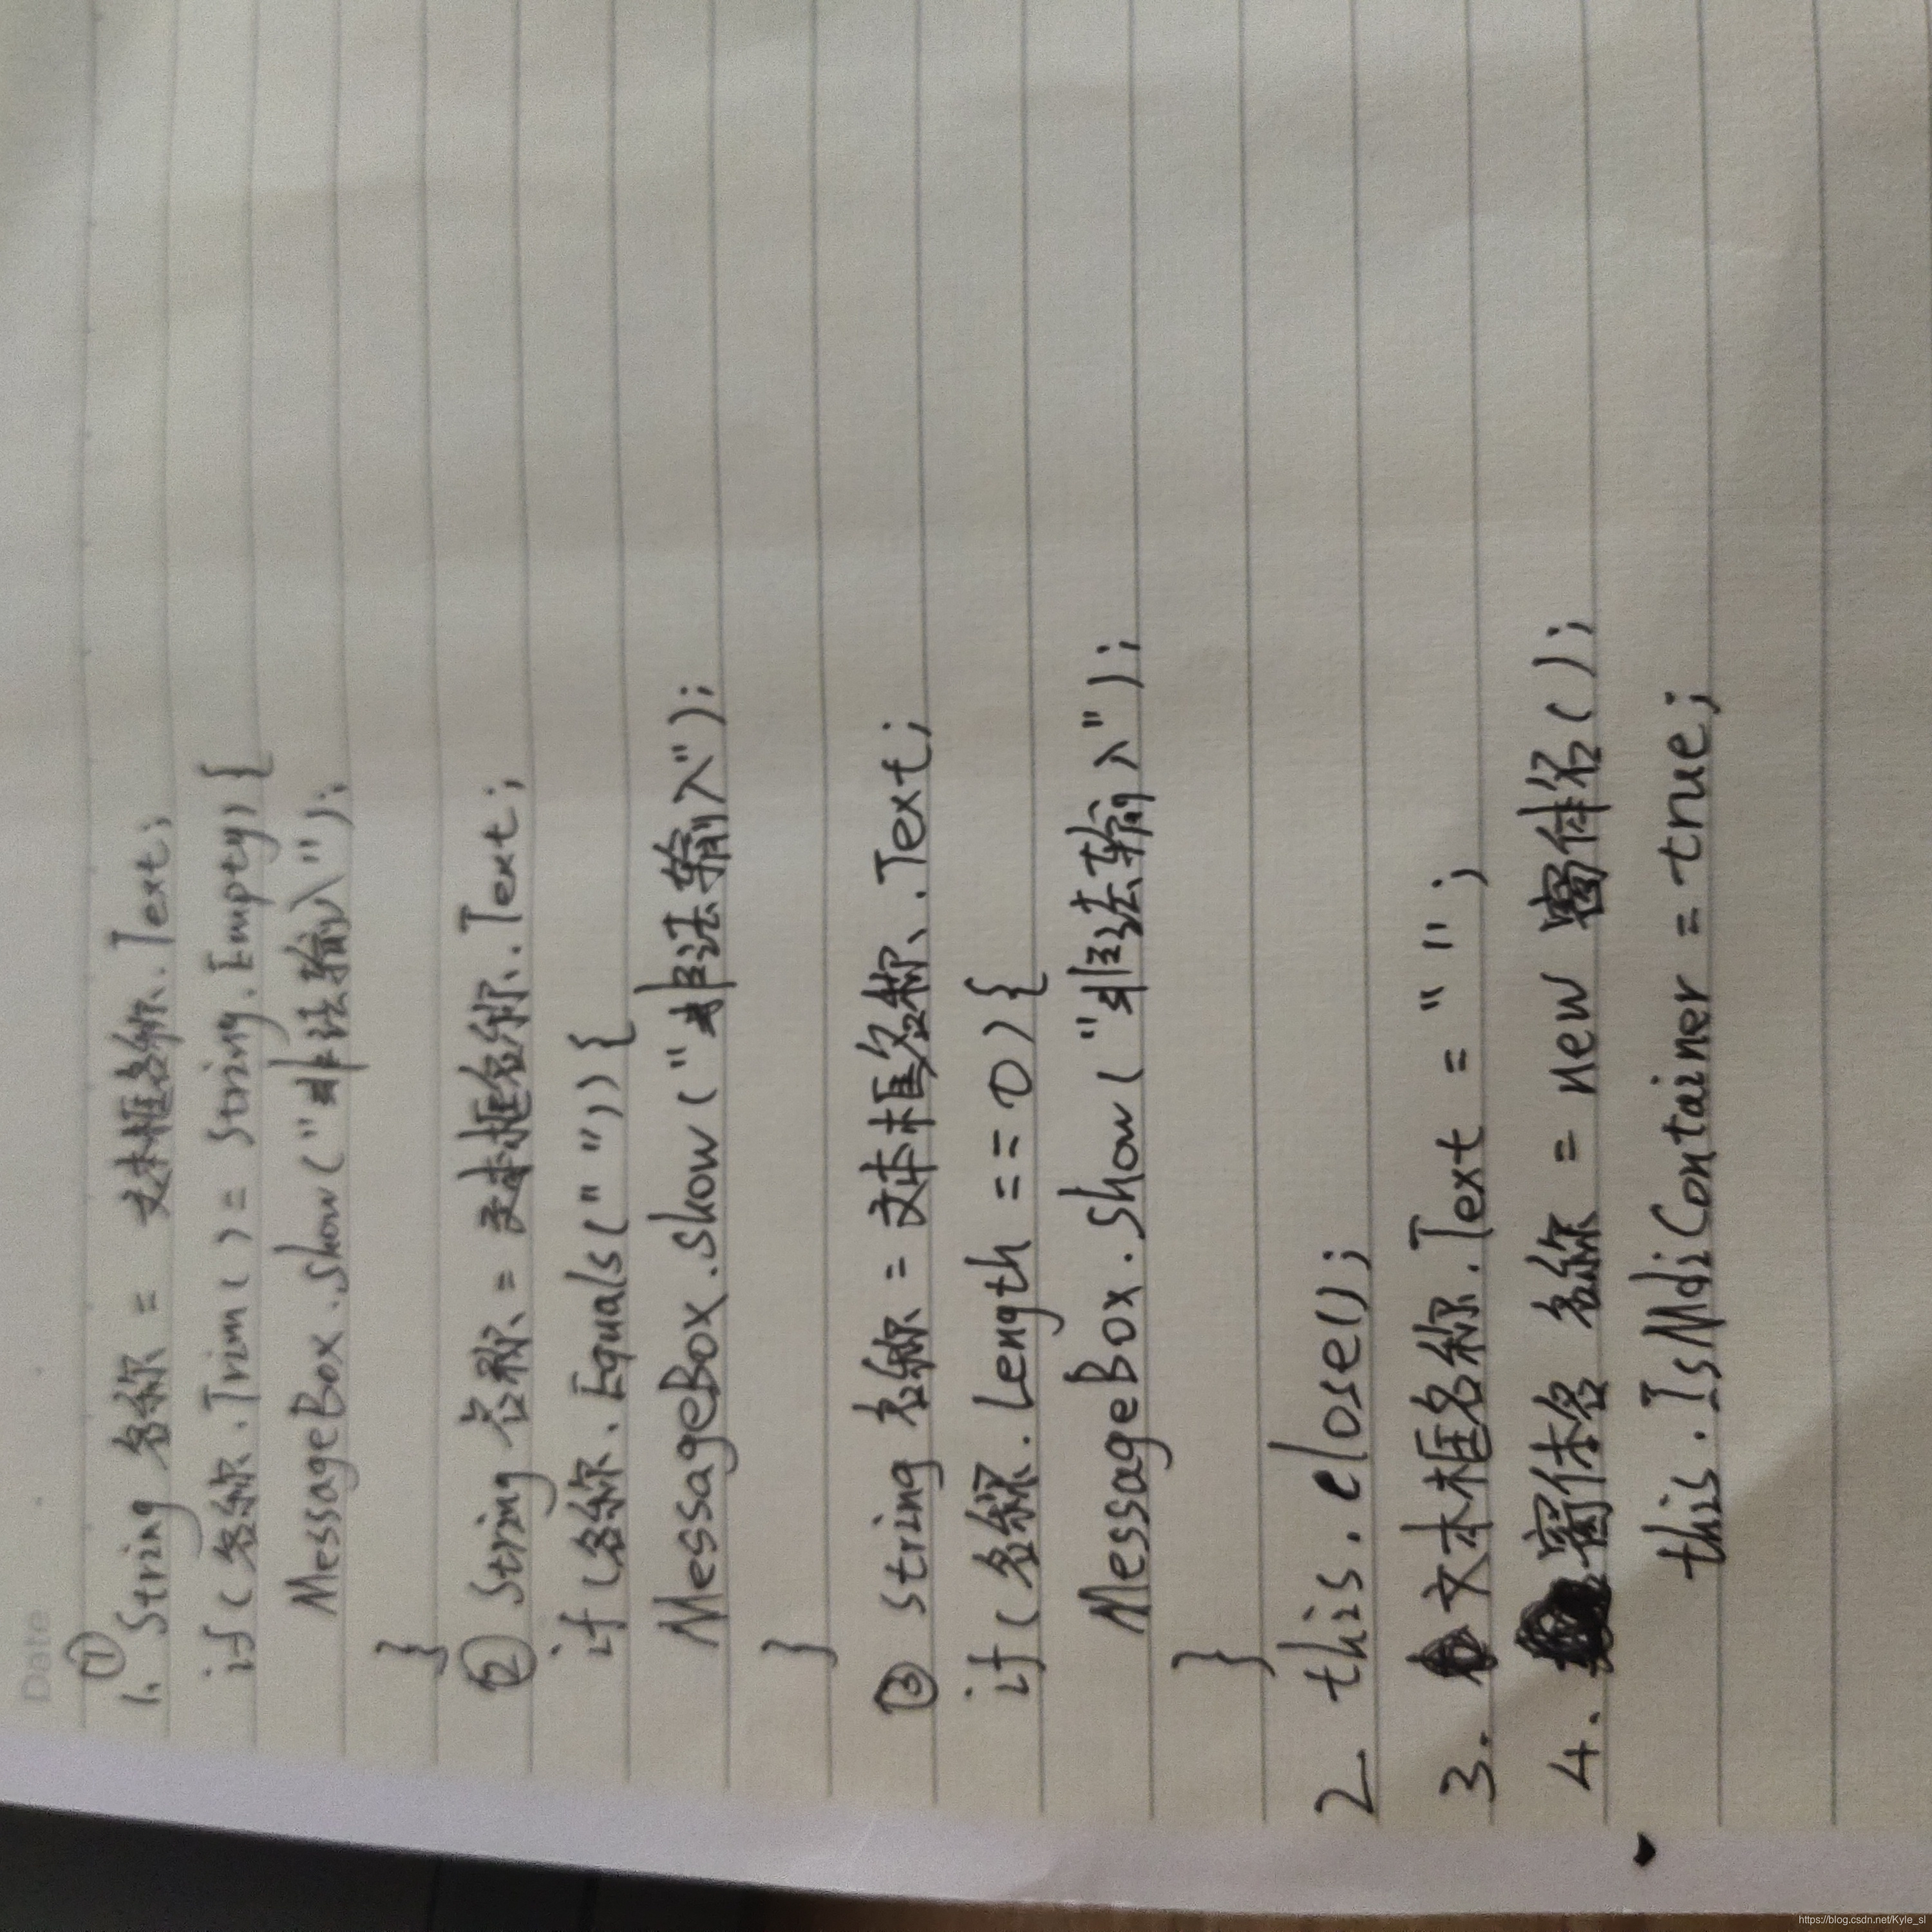 Date
①
1. String 名称 = 文本框名称.Text;
if(名称.Trim() = String.Empty){
MessageBox.show("非法输入");
}
② String 名称 = 文本框名称.Text;
if(名称.Equals("")){
MessageBox.show("非法输入");
}
③ String 名称 = 文本框名称.Text;
if(名称.Length == 0){
MessageBox.show("非法输入");
}
2 this.close();
3. 文本框名称.Text = "";
4. 窗体名 名称 = new 窗体名();
this.IsMdiContainer = true;
https://blog.csdn.net/Kyle_sl